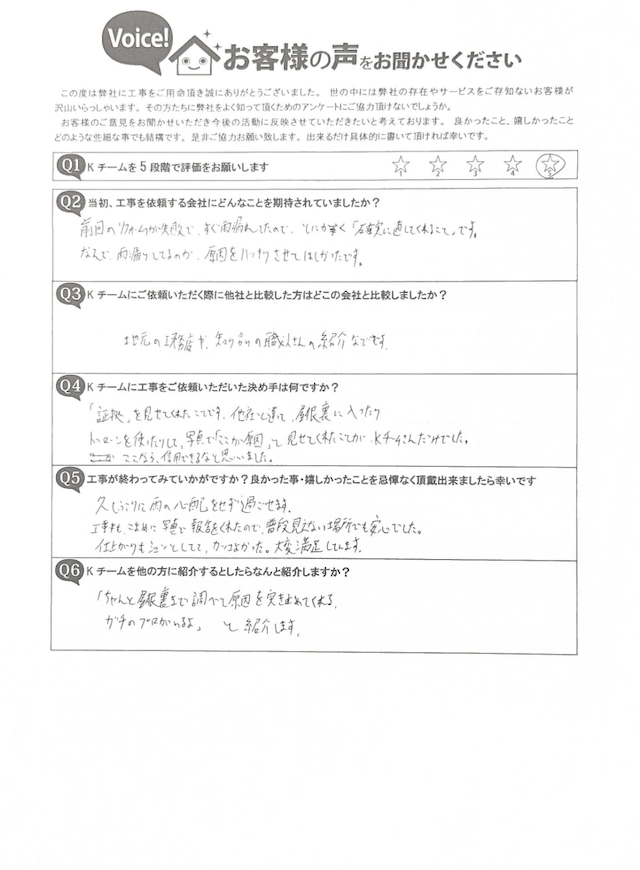 Voice!
お客様の声をお聞かせください
この度は弊社に工事をご用命頂き誠にありがとうございました。 世の中には弊社の存在やサービスをご存知ないお客様が
沢山いらっしゃいます。その方たちに弊社をよく知って頂くためのアンケートにご協力頂けないでしょうか。
お客様のご意見をお聞かせいただき今後の活動に反映させていただきたいと考えております。 良かったこと、嬉しかったこと
どのような些細な事でも結構です。 是非ご協力お願い致します。 出来るだけ具体的に書いて頂ければ幸いです。
Q1 K チームを 5 段階で評価をお願いします
1 2 3 4 5
Q2 当初、工事を依頼する会社にどんなことを期待されていましたか？
前回のリフォームが失敗で、すぐ雨漏れしたので、とにかく「確実に直してくれること」です。
なんで、雨漏りしてるのか、原因をハッキリさせてほしかったです。
Q3 K チームにご依頼いただく際に他社と比較した方はどこの会社と比較しましたか？
地元の工務店や、知り合いの職人さんの紹介などです。
Q4 K チームに工事をご依頼いただいた決め手は何ですか？
「証拠」を見せてくれたことです。他社と違って、屋根裏に入ったり
ドローンを使ったりして、写真で「ここが原因」と見せてくれたことが、Kチームさんだけでした。
ここなら、信用できるなと思いました。
Q5 工事が終わってみていかがですか？良かった事・嬉しかったことを忌憚なく頂戴出来ましたら幸いです
久しぶりに雨の心配をせず過ごせます。
工事も、こまめに写真で報告をくれたので、普段見えない場所でも安心でした。
仕上がりもシュッとしてて、カッコよかった。大変満足してます。
Q6 K チームを他の方に紹介するとしたらなんと紹介しますか？
「ちゃんと屋根裏まで調べて原因を突き止めてくれる、
ガチのプロがいるよ」 と紹介します。